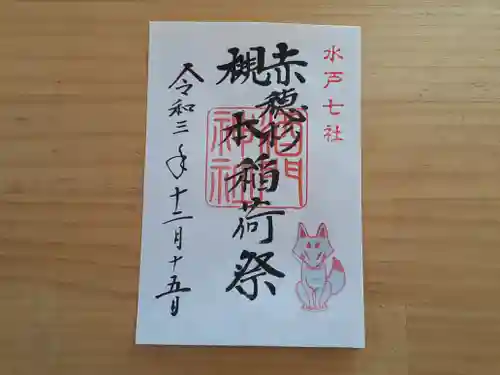 水戸七社
赤穂杉
槻本
稲荷祭
令和三年十二月十五日
神社